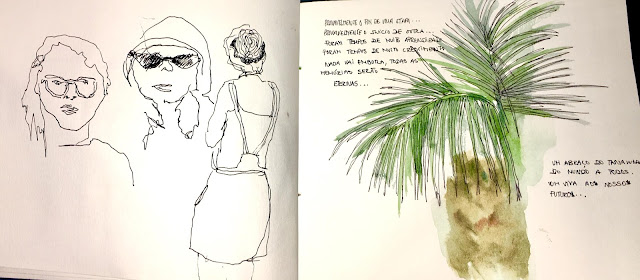 PROVAVELMENTE O FIM DE UMA ETAPA...
PROVAVELMENTE O INÍCIO DE OUTRA...
FORAM TEMPOS DE MUITA APRENDIZAGEM
FORAM TEMPOS DE MUITO CRESCIMENTO
NADA VAI EMBORA, TODAS AS
MEMÓRIAS SERÃO
ETERNAS...
UM ABRAÇO DO TAMANHO
DO MUNDO A TODOS.
UM VIVA AOS NOSSOS
FUTUROS...